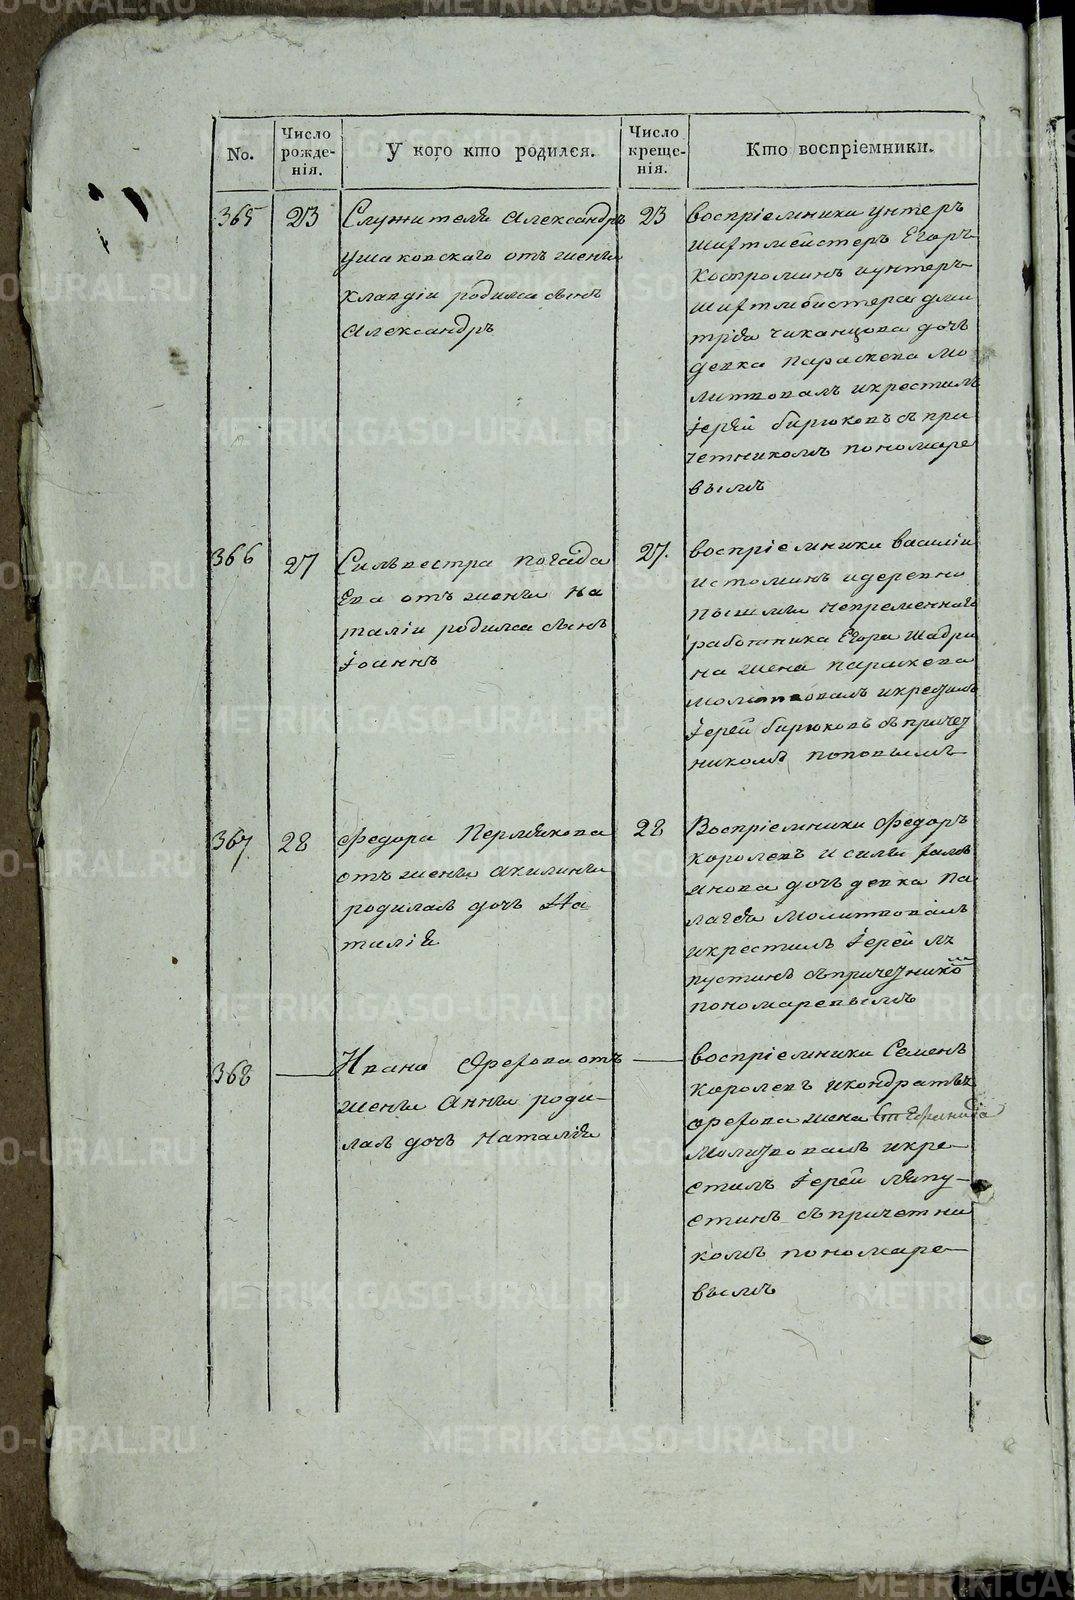 No.
Число рожде-
нія.
У кого кто родился.
Число креще-
нія.
Кто воспріемники.
365
23
Служителя Александра
Ушаковскаго отъ жены
Клавдіи родился сынъ
Александръ
23
воспріемники унтеръ
шихтмейстеръ Егоръ
Костроминъ и унтеръ
шихтмейстера Дми
трія Чиканцова дочь
девка Параскева мо
литвовалъ и крестилъ
Іерей Бирюковъ съ при
четникомъ Пономаре
вымъ
366
27
Сильвестра Погада
ева отъ жены На
таліи родился сынъ
Іоаннъ
27.
воспріемники Василіи
Истоминъ и деревни
Пышмы непременнаго
работника Егора Шадри
на жена Параскева
молитвовалъ и крестилъ
Іерей Бирюковъ съ причет
никомъ Поповымъ
367
28
Федора Пермякова
отъ жены Акилины
родилась дочь На
талія
28
Воспріемники Федоръ
Королевъ и
дочь девка Па
лагея молитвовалъ
и крестилъ Іерей Ля
пустинъ съ причетнико
м
Пономаревымъ
368
Ивана Орехова отъ
жены Анны роди-
лась дочь Наталія
воспріемники Семенъ
Королевъ и Кондратья
Орехова жена Стефанида
Молитвовалъ и кре-
стилъ Іерей Ляпу-
стинъ съ причетни
комъ Пономаре-
вымъ
METRIKI.GASO-URAL.RU